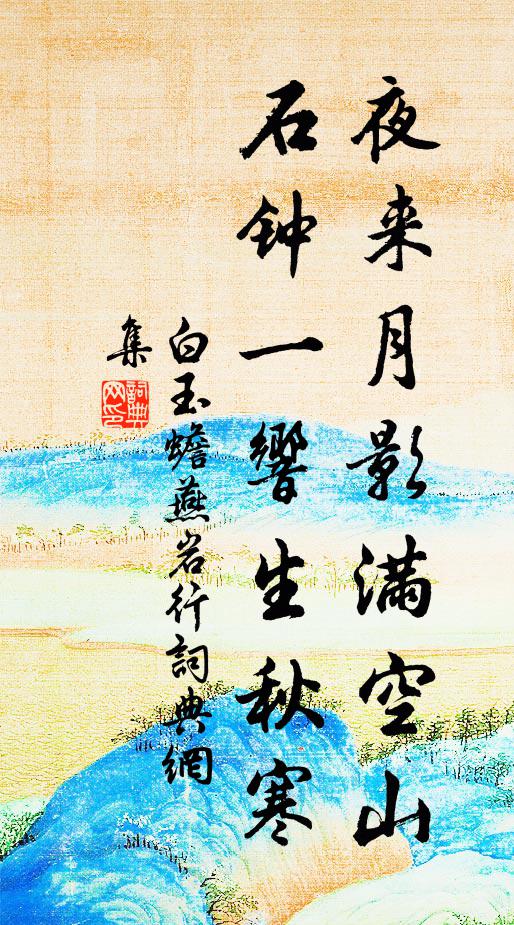 夜来月影满空山
石钟一響生秋寒
白玉蟾燕岩行詞典網
集
詞典网印